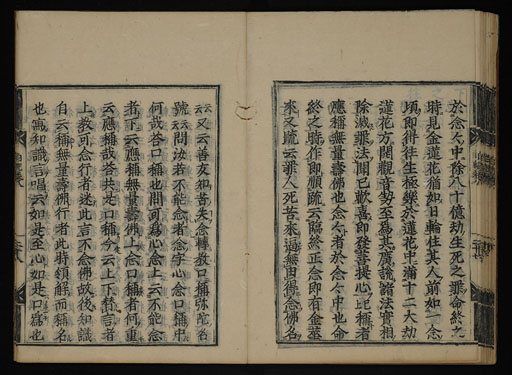 於念々中除八十億劫生死之罪命終之
時見金蓮花猶如日輪住其人前如一念
頃即得往生極樂於蓮花中滿十二大劫
蓮花方開觀音勢至為其廣說諸法實相
除滅罪法聞已歡喜即發菩提心已稱者
應稱無量壽佛也念々者於念々中也命
終之時作即順疏云臨終正念即有金蓮
來又疏云罪人死苦來逼無由得念佛名
云又云善友知苦失念轉教口稱彌陀名
號云問汝若不能念者念字心念口稱中
何哉答口稱也問可為心念上云不能念
者下云應稱無量壽佛上念口稱者何重
云應稱哉答共是口稱今云上下贊言者
上教可念行者迷此言不念佛故後知識
自云稱無量壽佛行者此時領解而稱名
也寫知識言唱云如是至心如是口為也